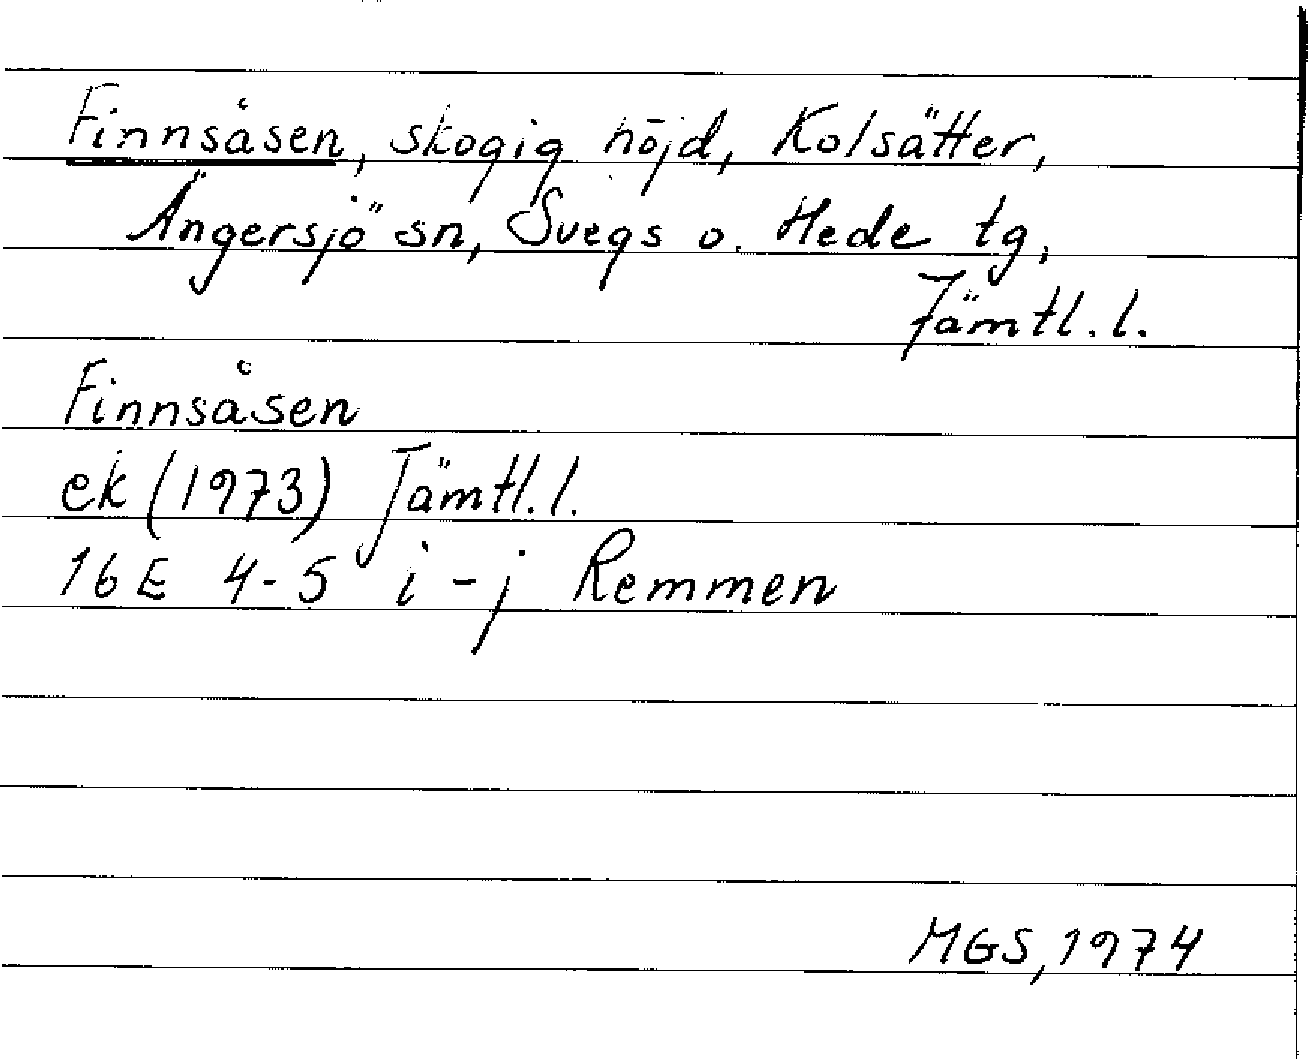 Finnsåsen, skogig höjd, Kolsätter,
Ängersjö sn, Svegs o. Hede tg,
Jämtl. l.
Finnsåsen
ek (1973) Jämtl. l.
16 E 4-5 i-j Remmen
MGS, 1974